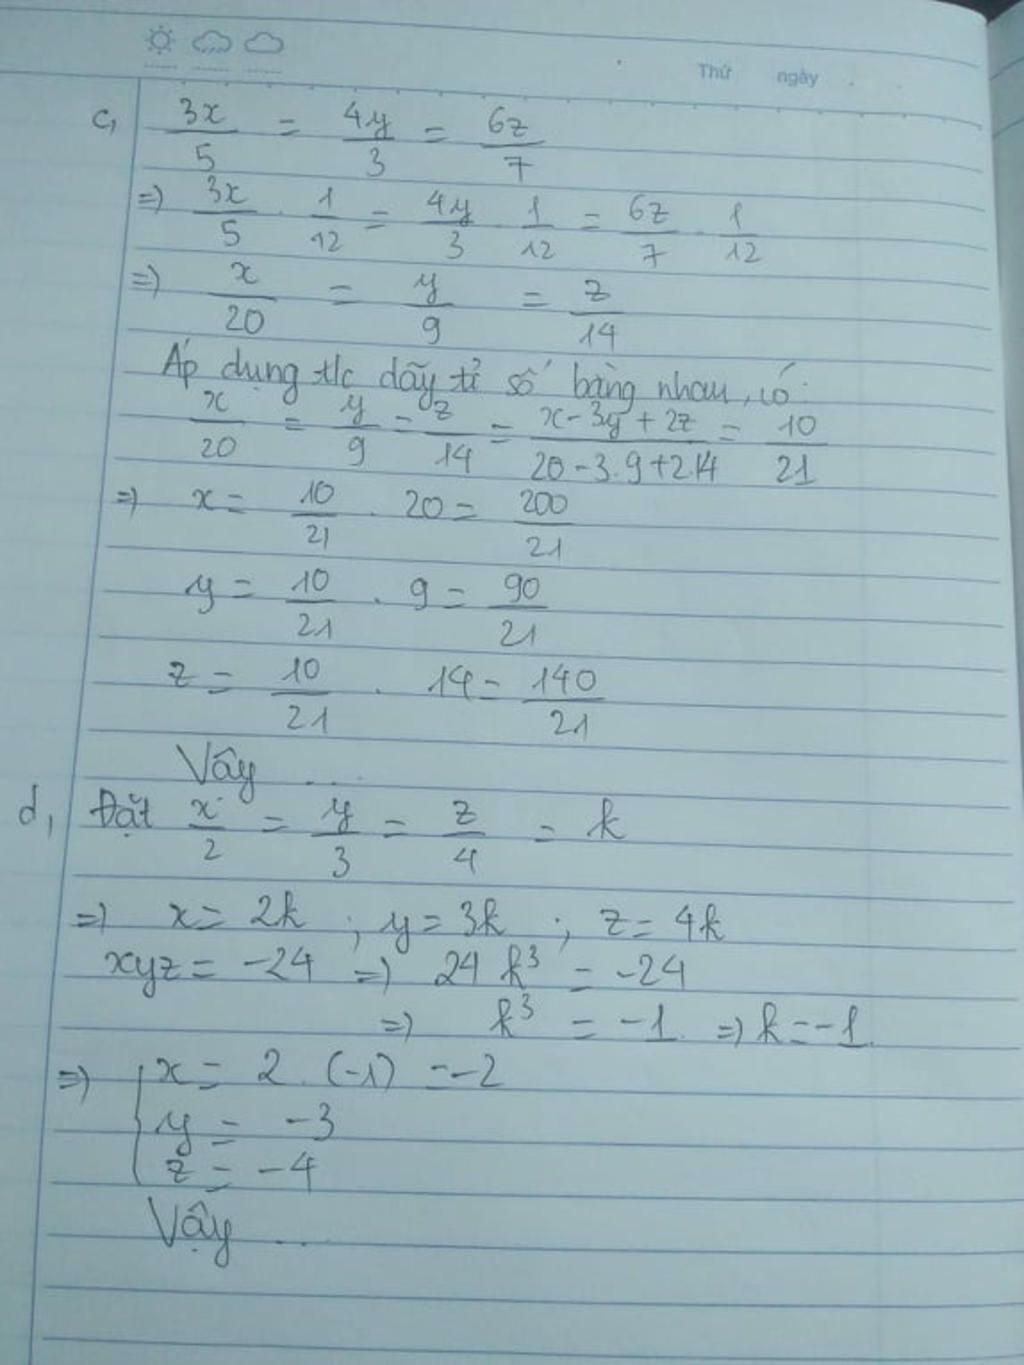 Thứ ngày
c, 3x/5 = 4y/3 = 6z/7
=) 3x/5 . 1/12 = 4y/3 . 1/12 = 6z/7 . 1/12
=) x/20 = y/9 = z/14
Áp dụng t/c dãy tỉ số bằng nhau, có:
x/20 = y/9 = z/14 = x-3y+2z/20-3.9+2.14 = 10/21
=) x = 10/21 . 20 = 200/21
y = 10/21 . 9 = 90/21
z = 10/21 . 14 = 140/21
Vây ...
d, Đặt x/2 = y/3 = z/4 = k
=) x = 2k ; y = 3k ; z = 4k
xyz = -24 =) 24 k³ = -24
=) k³ = -1 =) k = -1
=) x = 2 . (-1) = -2
y = -3
z = -4
Vậy ...